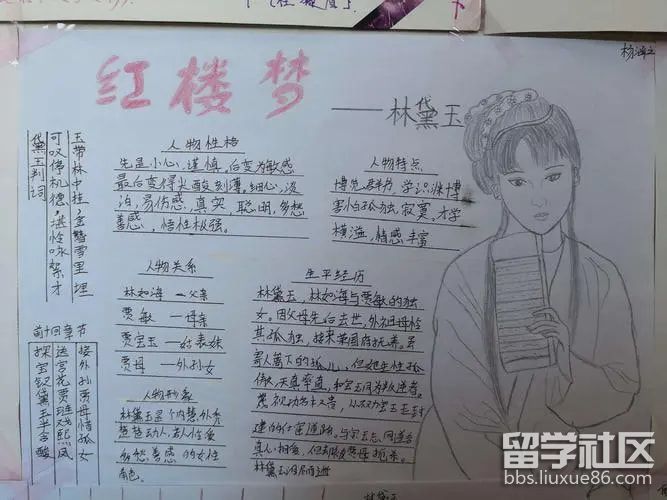 红楼梦
——林黛玉
人物性格
先是小心、谨慎,后变为敏感
最后变得尖酸刻薄,细心,淡
泊,易伤感,真实,聪明,多愁
善感,悟性极强。
人物特点
博览群书,学识渊博
害怕孤独,寂寞,才学
横溢,情感丰富
黛玉判词
可叹停机德,堪怜咏絮才
玉带林中挂,金簪雪里埋
人物关系
林如海 —父亲
贾敏 —母亲
贾宝玉—姑表妹
贾母 —外孙女
生平经历
林黛玉,林如海与贾敏的独
女。因父母先后去世,外祖母怜
其孤独,接来荣国府抚养。虽
寄人篱下的孤儿,但她生性孤
傲,天真率直,和宝玉同为叛逆者。
蔑视功名
建的仕宦道路。与宝玉
真心相爱,但
林黛玉
人物形象
林黛玉是个内慧外秀
楚楚动人,
多愁善感的女性
角色。
前十回章节
接外孙贾母惜孤女
送宫花贾琏戏熙凤
探宝钗黛玉半含酸
留学社区
bbs.liuxue86.com